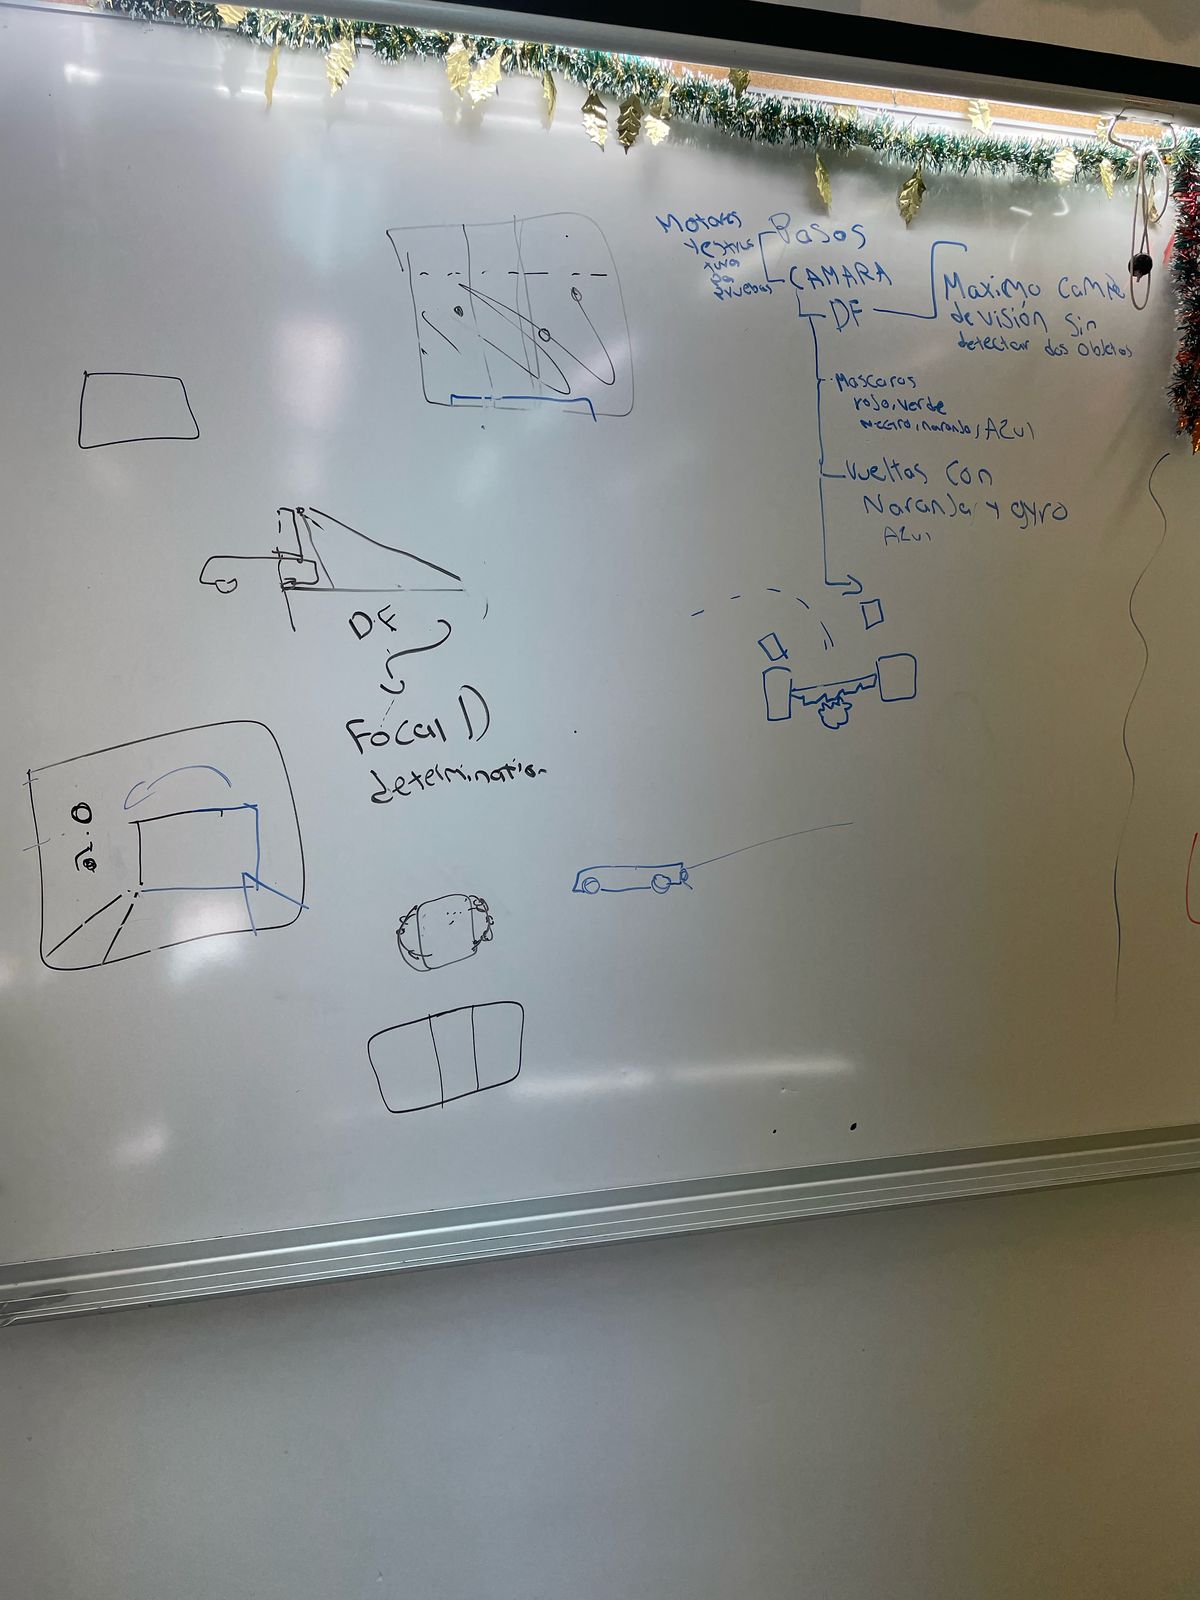 Motores
y estruc
tura
pa
pruebas
Pasos
CAMARA
DF
Maximo campo
de visión sin
detectar dos objetos
Mascaras
rojo, verde
negro, naranja, Azul
Vueltas con
Naranja y gyro
Azul
DF
Focal D
determination